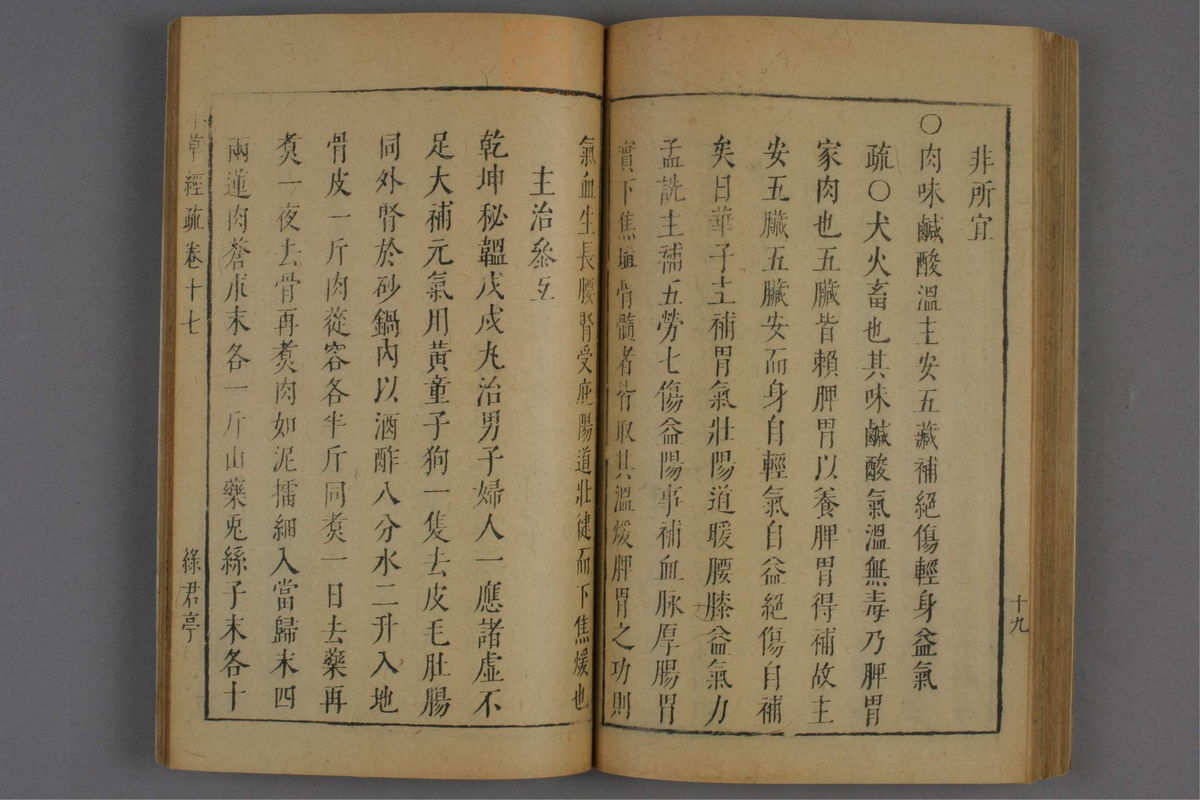 十九
非所宜
○肉味鹹酸溫主安五藏補絕傷輕身益氣
疏○犬火畜也其味鹹酸氣溫無毒乃脾胃
家肉也五臟皆賴脾胃以養脾胃得補故主
安五臟五臟安而身自輕氣自益絕傷自補
矣日華子主補胃氣壯陽道暖腰膝益氣力
孟詵主補五勞七傷益陽事補血脉厚腸胃
實下焦塡骨髓者皆取其溫煖脾胃之功則
氣血生長腰腎受庇陽道壯健而下焦煖也
主治叅互
乾坤秘韞戊戌丸治男子婦人一應諸虛不
足大補元氣用黃童子狗一隻去皮毛肚腸
同外腎於砂鍋內以酒酢八分水二升入地
骨皮一斤肉蓯容各半斤同煑一日去藥再
煑一夜去骨再煑肉如泥擂細入當歸末四
兩蓮肉蒼朮末各一斤山藥兎絲子末各十
本草經疏卷十七
綠君亭